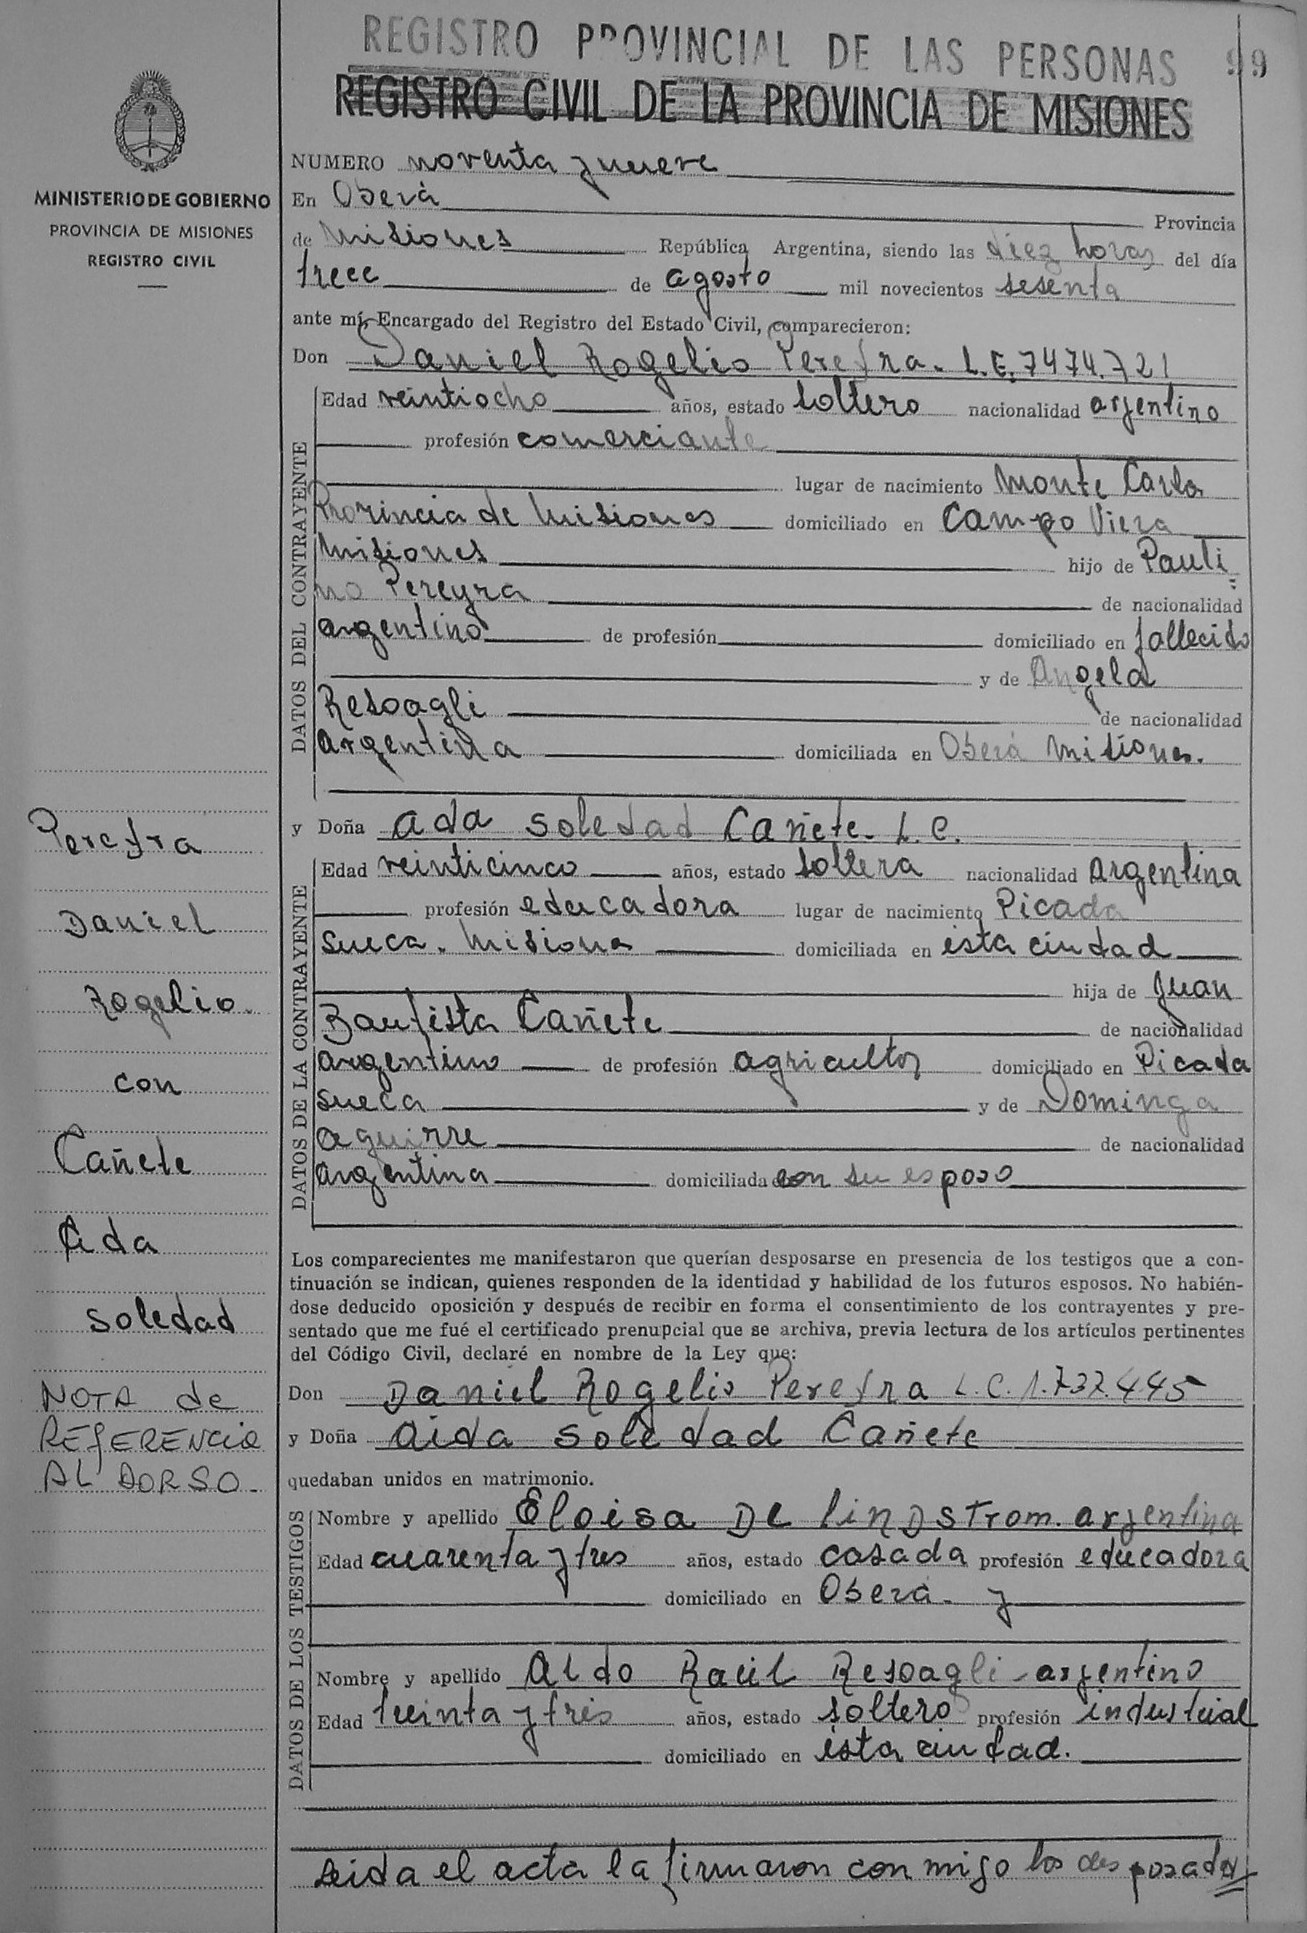 REGISTRO PROVINCIAL DE LAS PERSONAS 99
REGISTRO CIVIL DE LA PROVINCIA DE MISIONES
MINISTERIO DE GOBIERNO
PROVINCIA DE MISIONES
REGISTRO CIVIL
NUMERO noventa y nueve
En Oberá Provincia
de Misiones República Argentina, siendo las diez horas del día
trece de agosto mil novecientos sesenta
ante mí, Encargado del Registro del Estado Civil, comparecieron:
Don Daniel Rogelio Pereyra. L.E. 7474.721
DATOS DEL CONTRAYENTE
Edad veintiocho años, estado soltero nacionalidad argentino
profesión comerciante
lugar de nacimiento Monte Carlo
Provincia de Misiones domiciliado en Campo Viera
Misiones hijo de Pauli
no Pereyra de nacionalidad
argentino de profesión domiciliado en fallecido
y de Angela
Resoagli de nacionalidad
argentina domiciliada en Oberá Misiones.
y Doña Ada Soledad Cañete. L.C.
DATOS DE LA CONTRAYENTE
Edad veinticinco años, estado soltera nacionalidad argentina
profesión educadora lugar de nacimiento Picada
Sueca. Misiones domiciliada en ésta ciudad
hija de Juan
Bautista Cañete de nacionalidad
argentino de profesión agricultor domiciliado en Picada
Sueca y de Dominga
Aguirre de nacionalidad
argentina domiciliada con su esposo
Los comparecientes me manifestaron que querían desposarse en presencia de los testigos que a con-
tinuación se indican, quienes responden de la identidad y habilidad de los futuros esposos. No habién-
dose deducido oposición y después de recibir en forma el consentimiento de los contrayentes y pre-
sentado que me fué el certificado prenupcial que se archiva, previa lectura de los artículos pertinentes
del Código Civil, declaré en nombre de la Ley que:
Don Daniel Rogelio Pereyra L.C. 1.737.445
y Doña Aida Soledad Cañete
quedaban unidos en matrimonio.
DATOS DE LOS TESTIGOS
Nombre y apellido Eloisa De Lindstrom. argentina
Edad cuarenta y tres años, estado casada profesión educadora
domiciliado en Oberá. y
Nombre y apellido Aldo Raúl Resoagli - argentino
Edad treinta y tres años, estado soltero profesión industrial
domiciliado en ésta ciudad.
Leida el acta la firmaron conmigo los desposados
Pereyra
Daniel
Rogelio.
con
Cañete
Ada
Soledad
NOTA de
REFERENCIA
AL DORSO.